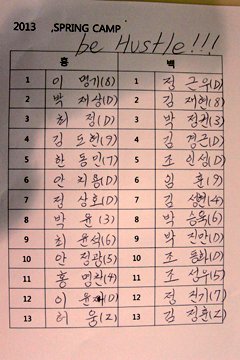 2013 ,SPRING CAMP
be Hustle!!!
홍 백
1 이 명기(8) 1 정 근우(D)
2 박 재상(D) 2 김 재현(8)
3 최 정(D) 3 박 정권(3)
4 김 도현(9) 4 김 경근(D)
5 한 동민(7) 5 조 인성(D)
6 안 치용(D) 6 임 훈(9)
7 정 상호(D) 7 김 성현(4)
8 박 윤(3) 8 박 승욱(6)
9 최 윤석(6) 9 박 진만(D)
10 안 정광(5) 10 조 동화(D)
11 홍 명찬(4) 11 조 성우(5)
12 이 (D) 12 정 진기(7)
13 허 웅(2) 13 김 정훈(2)